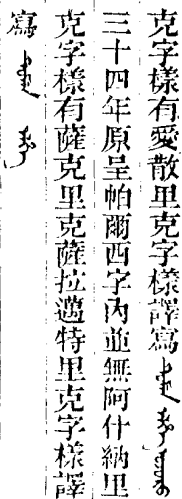 克字樣有愛散里克字樣譯寫
三十四年原呈帕爾西字內並無阿什納里
克字樣有薩克里克薩拉邁特里克字樣譯
寫